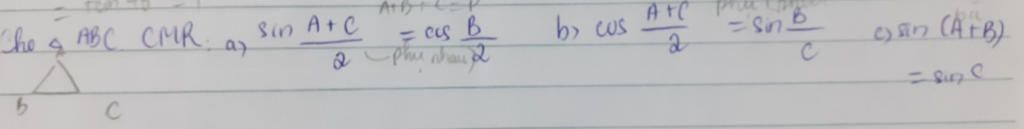 A+B+C=P
Cho ABC CMR: a) sin \frac{A+C}{2} = cos \frac{B}{2} b) cos \frac{A+C}{2} = sin \frac{B}{C} c) sin (A+B)
phụ nhau
= sin C
B C